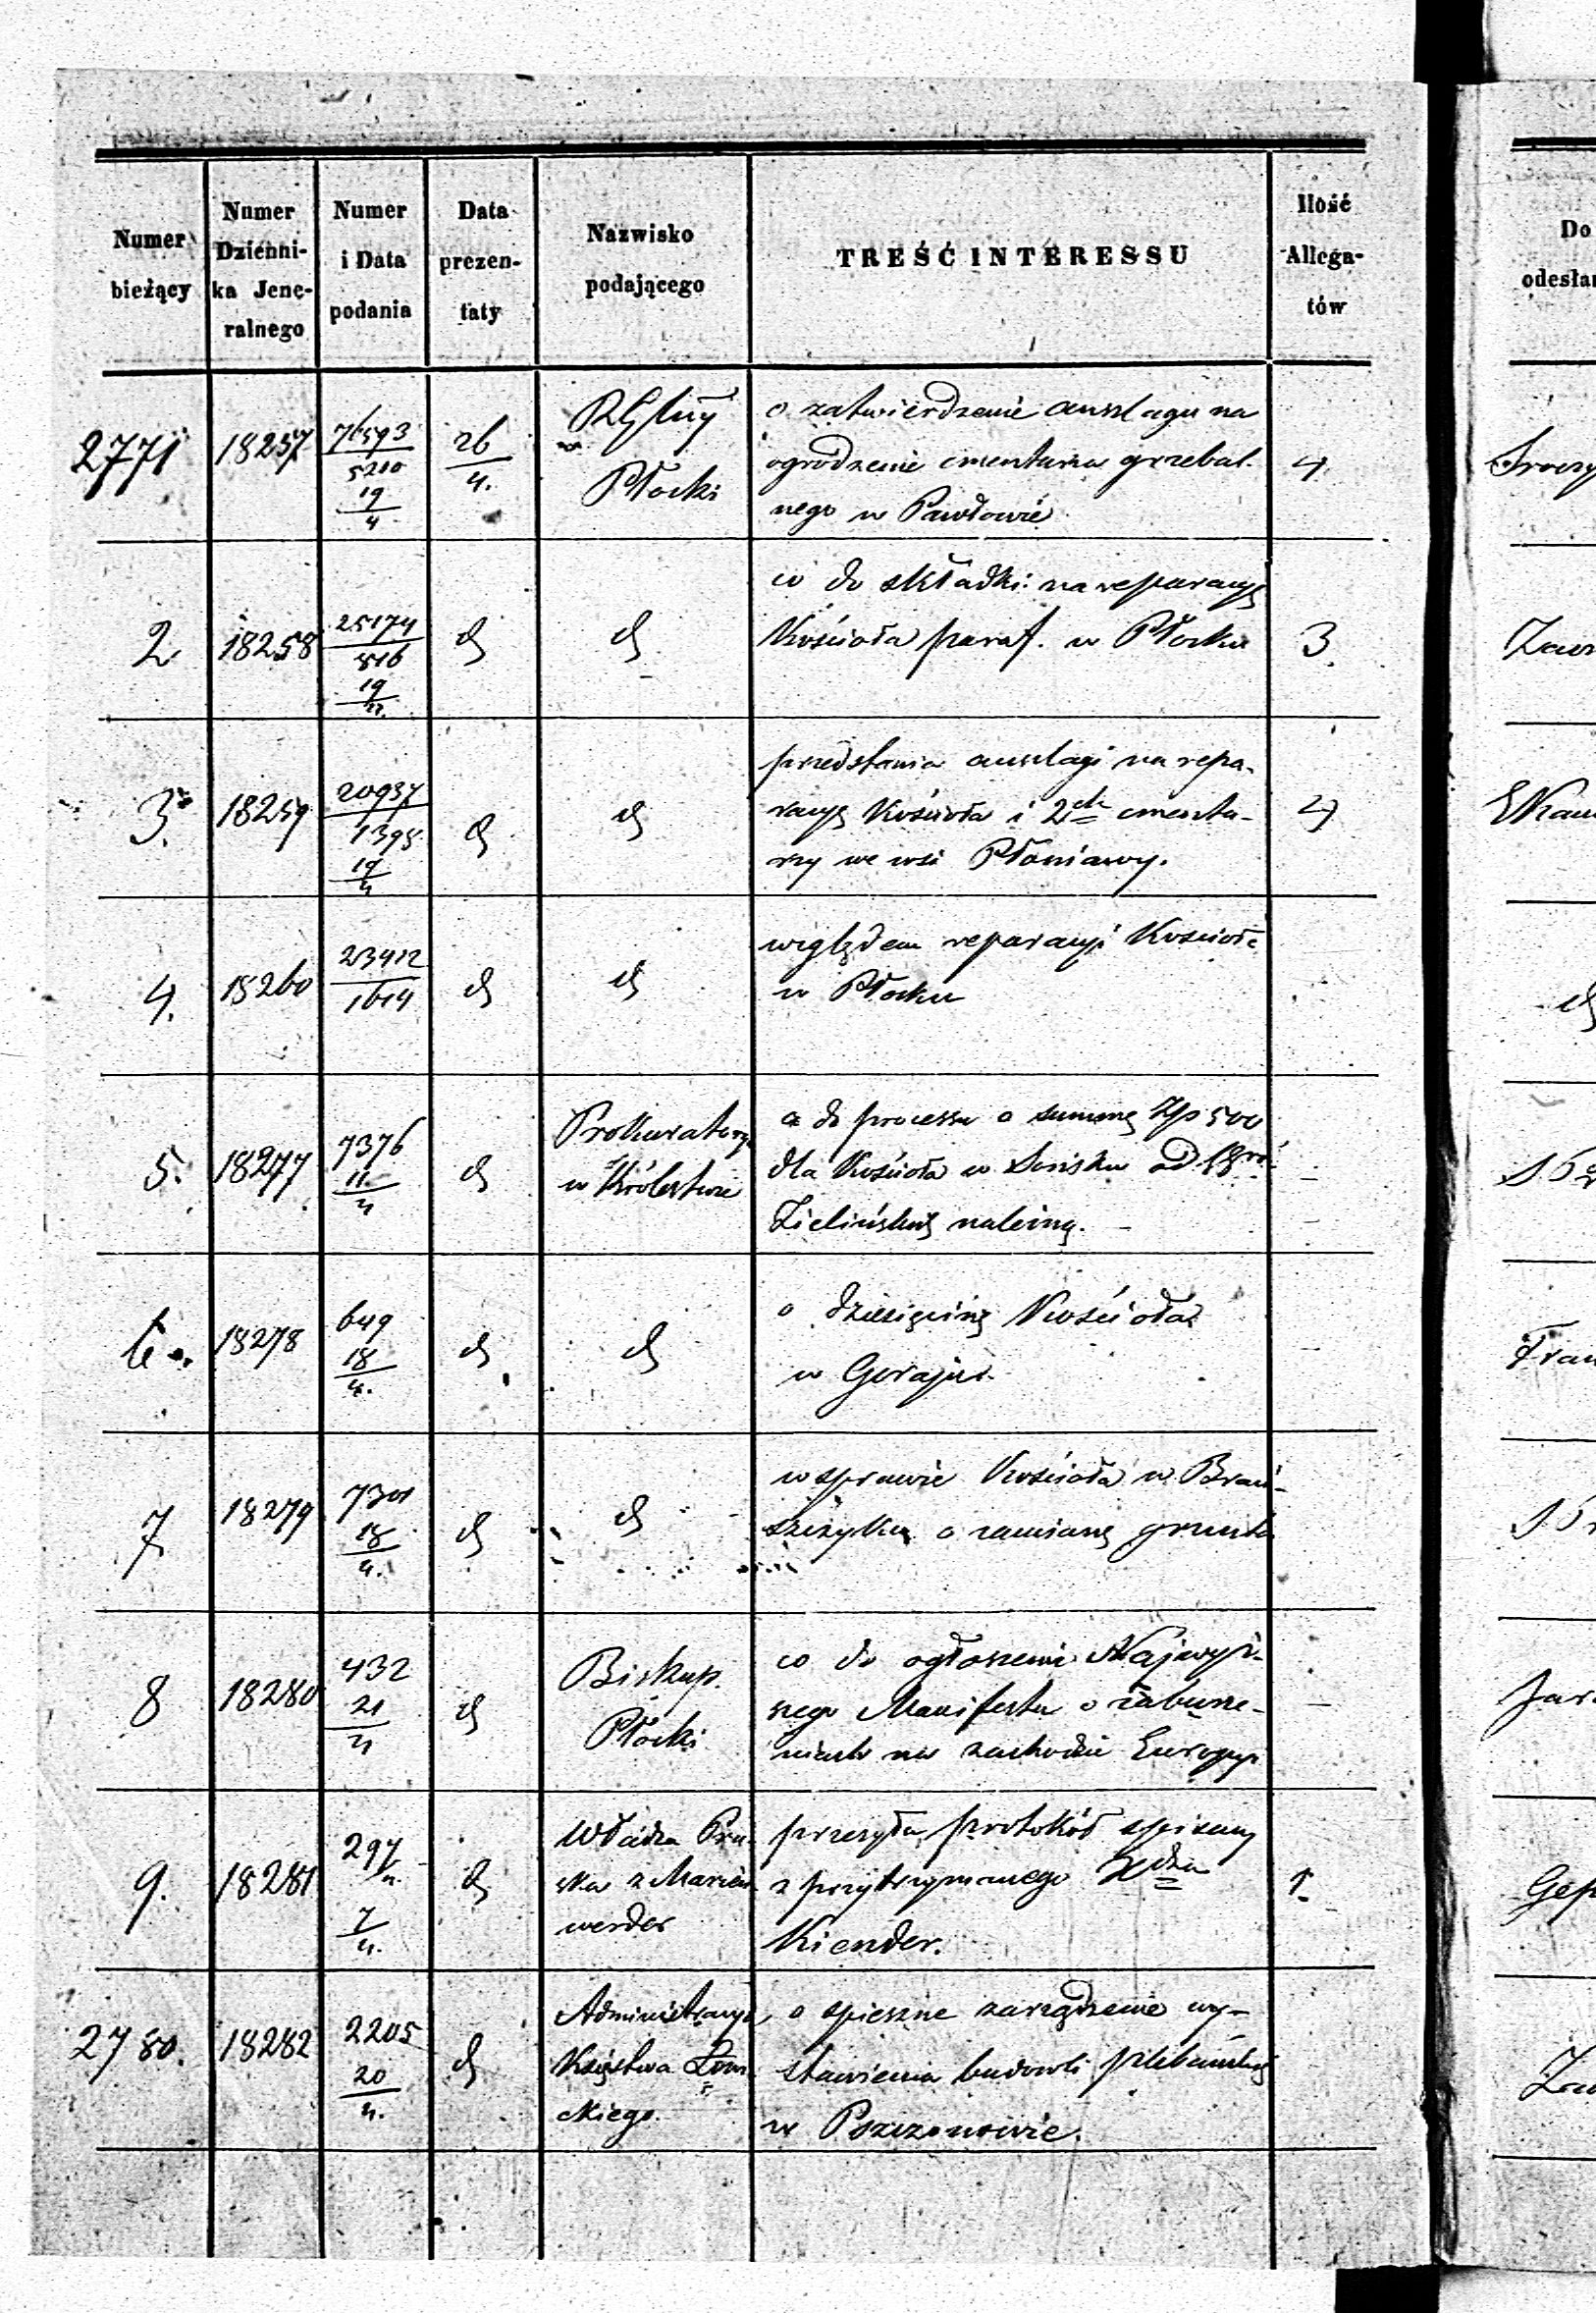 Numer bieżący | Numer Dzienni-ka Jene-ralnego | Numer i Data podania | Data prezen-taty | Nazwisko podającego | TREŚĆ INTERESSU | Ilość Allega-tów | Do odesła
2771 | 18257 | 76593/5210 19/4 | 26/4. | Płocki | o zatwierdzenie anszlagu na
ogrodzenie cmentarza grzebal-
nego w Pawłowie | 4
2 | 18258 | 25174/816 19/4 | d | d | co do składki na reparacyę
Kościoła paraf. w Płocku | 3
3. | 18259 | 20937/1395 19/4 | d | d | przedstawia anszlagi na repa-
racyę Kościoła i 2ch cmenta-
rzy we wsi Płoniawy. | 4
4. | 18260 | 23412/1614 | d | d | względem reparacyi Kościoła
w Płocku | d
5. | 18277 | 7376 11/4 | d | Prokuratorya
w Królestwie | co do processu o summę Złp 500
dla Kościoła w Sońsku od
Zielińskiej należną. | -
6. | 18278 | 649 18/4. | d | d | o dziesięcinę Kościoła
w Goraju
7 | 18279 | 7301 18/4. | d | d | w sprawie Kościoła w Brań-
szczyku o zamianę gruntu
8 | 18280 | 432 21/4 | d | Biskup
Płocki | co do ogłoszenia Najwyż-
szego Manifestu o zaburze-
niach na zachodzie Europy | -
9. | 18281 | 297 7/4. | d | Władza Pru-
ska z Marien-
werder | przesyła protokół spisany
z przytrzymanego Xdza
Kiender. | 1
2780. | 18282 | 2205 20/4. | d | Administracya
Księstwa Łowi-
ckiego. | o spieszne zarządzenie wy-
stawienia budowli plebańskiej
w Pszczonowie.